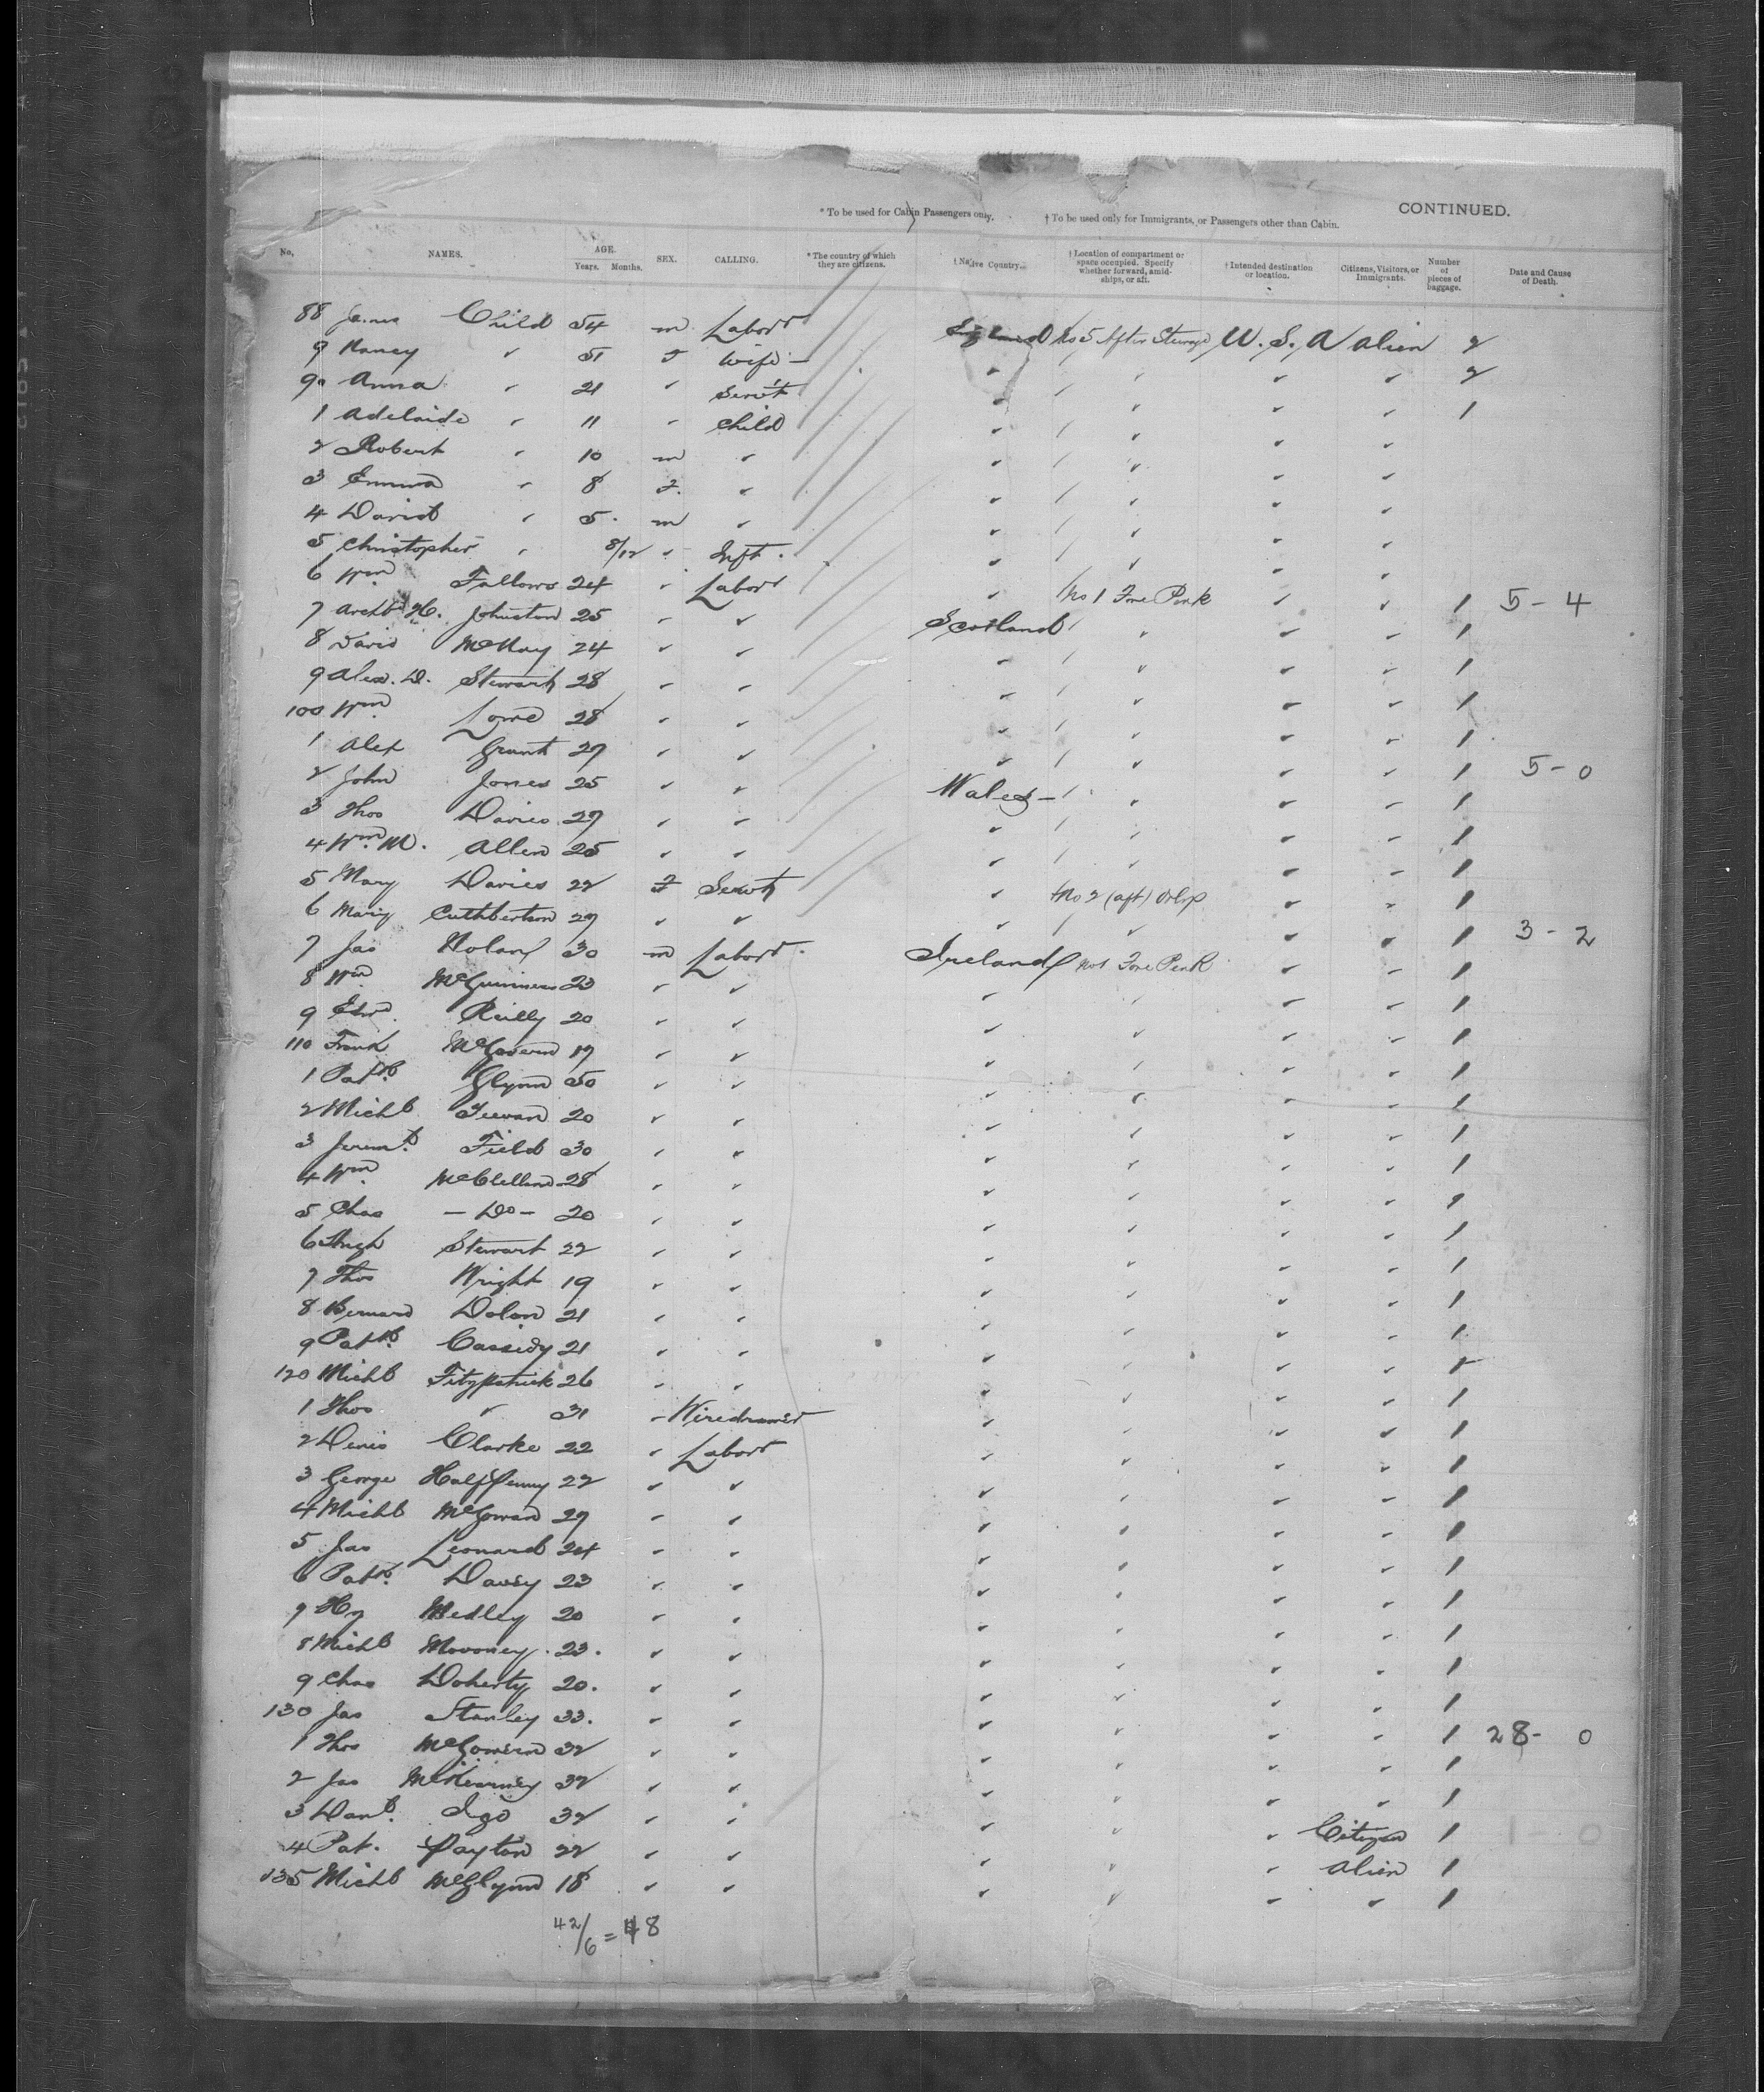 CONTINUED.
* To be used for Cabin Passengers only. † To be used only for Immigrants, or Passengers other than Cabin.
No. NAMES. AGE. Years. Months. SEX. CALLING. * The country of which they are citizens. † Native Country. † Location of compartment or space occupied. Specify whether forward, amidships, or aft. † Intended destination or location. Citizens, Visitors, or Immigrants. Number of pieces of baggage. Date and Cause of Death.
88 James Child 54 m Labor England No 5 After Steerage U. S. A Alien 2
9 Nancy " 51 f Wife " " " " " 2
90 Anna " 21 " Servt " " " " " 1
1 Adelaide " 11 " Child " " " " "
2 Robert " 10 m " " " " " "
3 Emma " 8 f. " " " " " "
4 David " 5. m " " " " " "
5 Christopher " 8/12 " Inft. " " " " "
6 Wm Fallows 24 " Labor " No 1 Fore Peak " " 1 5 - 4
7 Archd H. Johnston 25 " " Scotland " " " " 1
8 David McKay 24 " " " " " " " 1
9 Alex. D. Stewart 28 " " " " " " " 1
100 Wm Lowe 28 " " " " " " " 1
1 Alex Grant 29 " " " " " " " 1 5 - 0
2 John Jones 25 " " Wales - " " " " 1
3 Thos Davies 29 " " " " " " " 1
4 Wm. M. Allen 25 " " " " " " " 1
5 Mary Davies 22 f Servt " No 2 (aft) Orlop " " 1
6 Mary Cuthbertson 29 " " " " " " " 1 3 - 2
7 Jas Nolan 30 m Labor. Ireland No 1 Fore Peak " " 1
8 Wm. McGuinness 23 " " " " " " 1
9 Edwd. Reilly 20 " " " " " " 1
110 Frank McGovern 19 " " " " " " 1
1 Patk. Glynn 50 " " " " " " 1
2 Michl Teevan 20 " " " " " " 1
3 Jerem. Field 30 " " " " " " 1
4 Wm. McClelland 28 " " " " " "
5 Chas - Do - 20 " " " " " " 1
6 Hugh Stewart 22 " " " " " " 1
7 Thos Wright 19 " " " " " " 1
8 Bernard Dolan 21 " " " " " " 1
9 Patk. Cassidy 21 " " " " " "
120 Michl Fitzpatrick 26 " " " " " " 1
1 Thos " 31 " Wiredrawer " " " " 1
2 Denis Clarke 22 " Labor " " " " 1
3 George Halfpenny 22 " " " " " " 1
4 Michl McGowan 29 " " " " " " 1
5 Jas Leonard 24 " " " " " " 1
6 Patk. Davey 23 " " " " " " 1
7 Hy Medley 20 " " " " " " 1
8 Michl 23. " " " " " " 1
9 Chas Doherty 20. " " " " " " 1
130 Jas Stanley 33. " " " " " " 1 28 - 0
1 Thos McGovern 32 " " " " " " 1
2 Jas McKearney 32 " " " " " " 1
3 Danl. Igo 32 " " " " " Citizen 1 1 0
4 Pat. Payton 22 " " " " " Alien 1
135 Michl McGlynn 18 " " " " " " 1
42/6 = 48